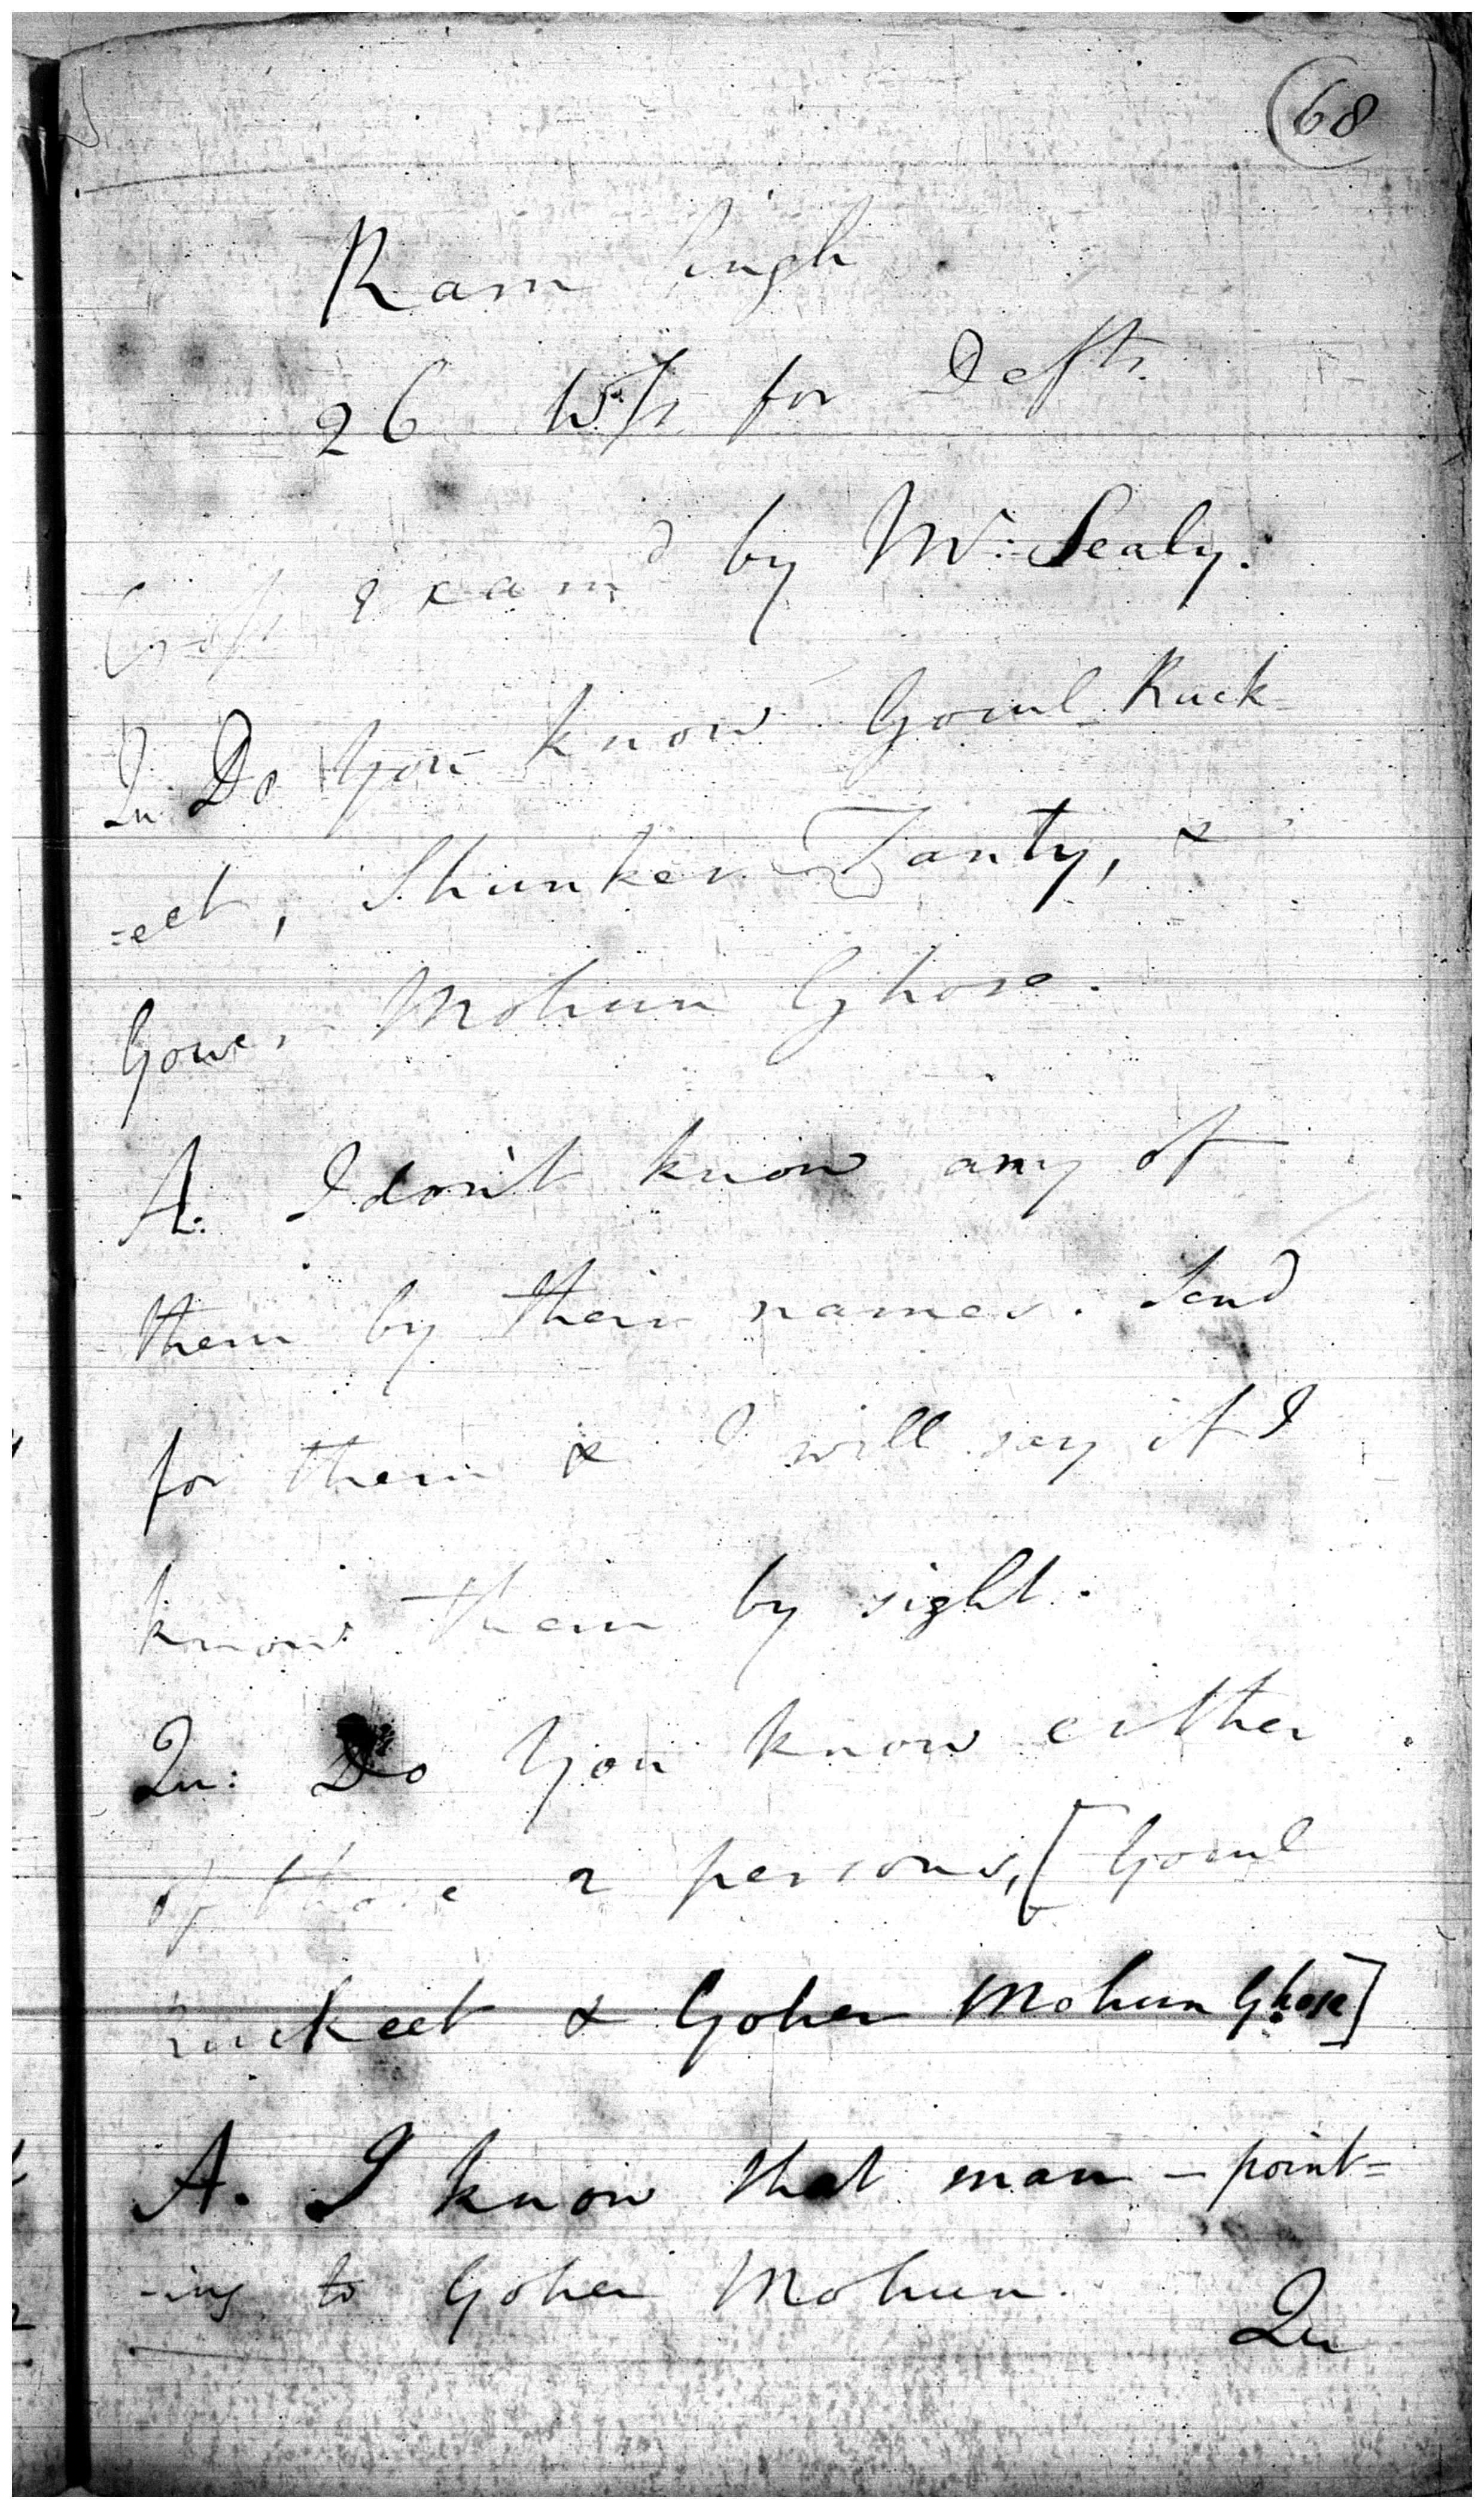 68
Ram Singh
26 Wts. for Defts.
Cross examd by Mr: Sealy.
Qu: Do you know Gocul Ruck-
=eet, Shunker Tanty, &
Gower Mohun Ghose.
A: I don't know any of
them by their names. Send
for them & I will say if I
know them by sight.
Qu: Do you know either
of these 2 persons, [Gocul
ruckeet & Goher Mohun Ghose]
A. I know that man - point=
-ing to Goher Mohun.
Qu